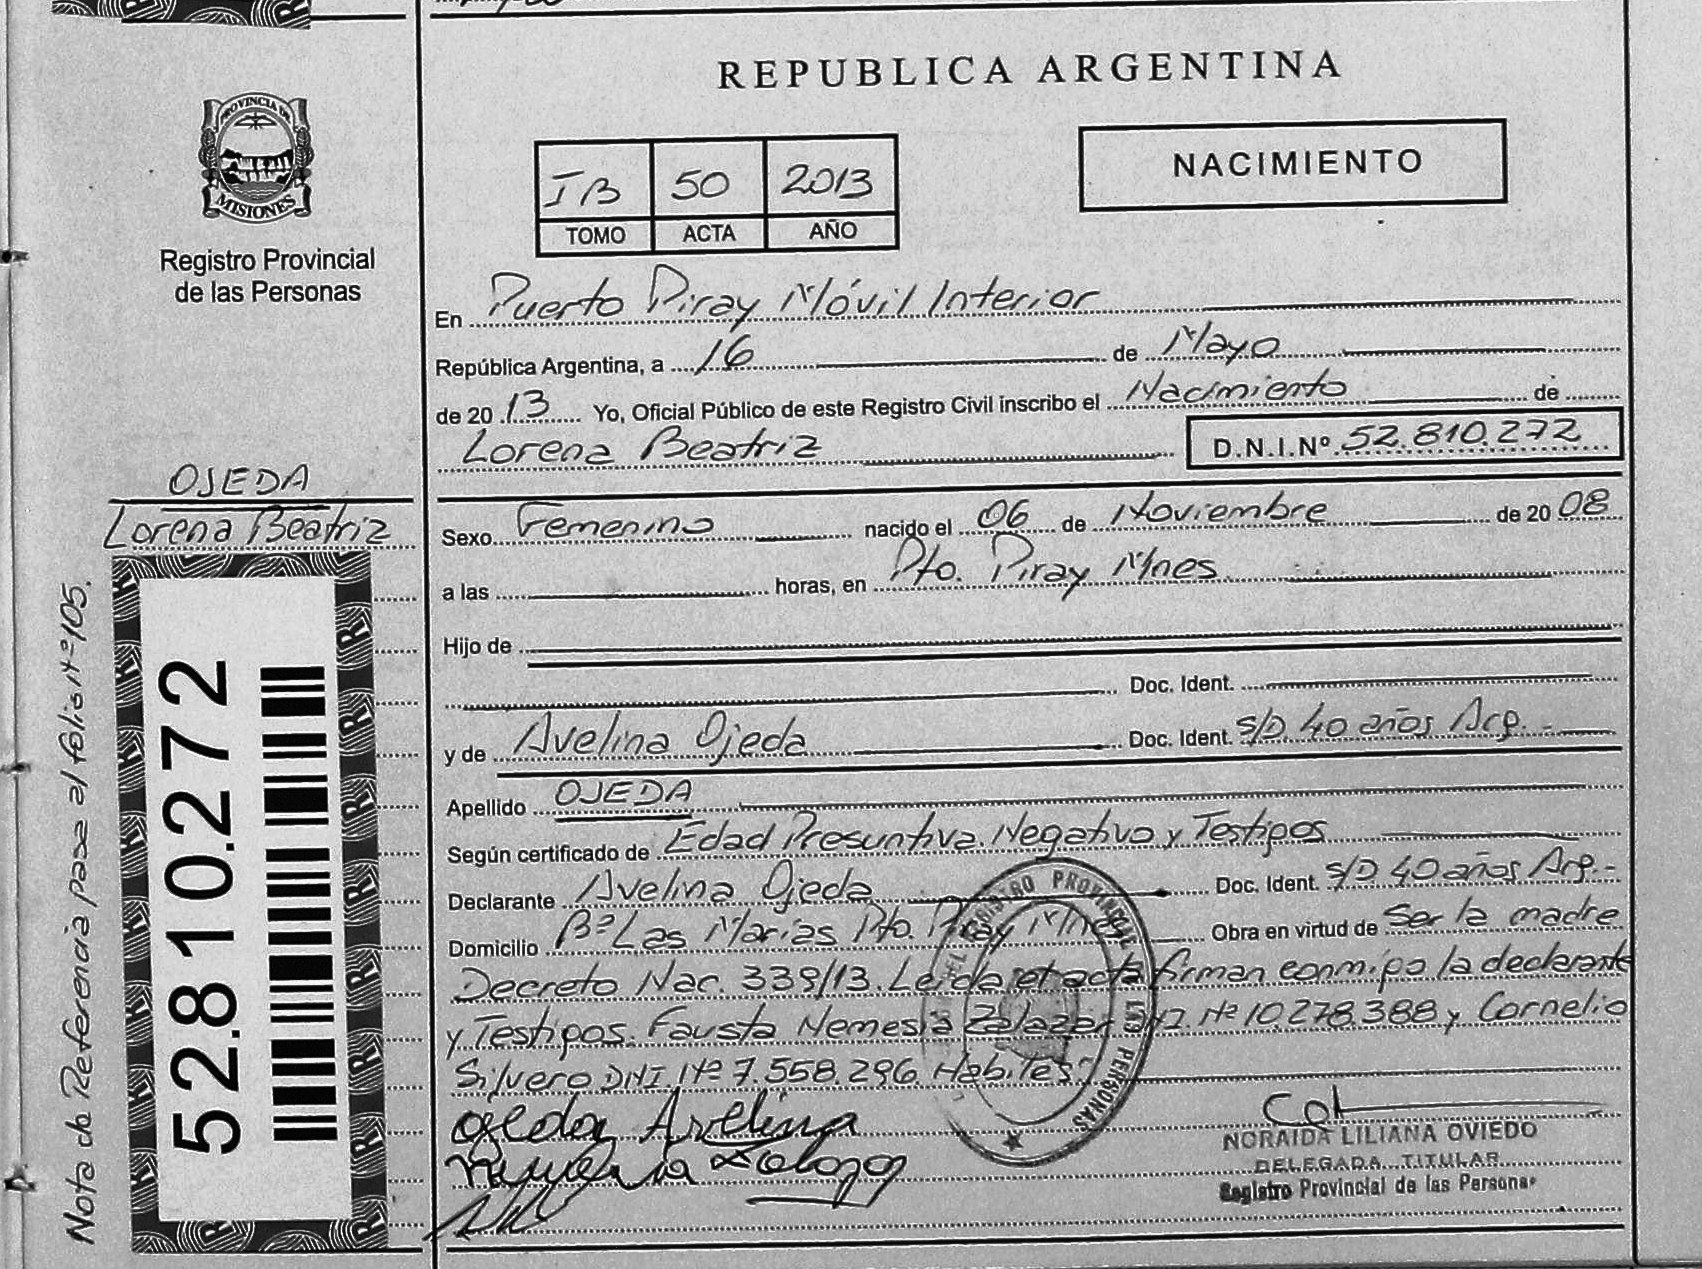 REPUBLICA ARGENTINA
PROVINCIA DE
MISIONES
Registro Provincial
de las Personas
IB 50 2013
TOMO ACTA AÑO
NACIMIENTO
En Puerto Piray Móvil Interior
República Argentina, a 16 de Mayo
de 2013 Yo, Oficial Público de este Registro Civil inscribo el Nacimiento de
Lorena Beatriz D.N.I.Nº 52.810.272
OJEDA
Lorena Beatriz
Sexo Femenino nacido el 06 de Noviembre de 2008
a las horas, en Pto. Piray Mnes.
Hijo de
Doc. Ident.
y de Avelina Ojeda Doc. Ident. S/D 40 años Arg.-
Apellido OJEDA
Según certificado de Edad Presuntiva. Negativo y Testigos
Declarante Avelina Ojeda Doc. Ident. S/D 40 años Arg.-
Domicilio Bº Las Marías Pto. Piray Mnes Obra en virtud de Ser la madre
Decreto Nac. 339/13. Leída el acta firman conmigo la declarante
y Testigos: Fausta Nemesia Zalazar DNI. Nº 10.278.388 y Cornelio
Silvero DNI. Nº 7.558.296. Hábiles.-
Ojeda Avelina
NORAIDA LILIANA OVIEDO
DELEGADA TITULAR
Registro Provincial de las Personas
REGISTRO PROVINCIAL DE LAS PERSONAS
52.810.272
Nota de Referencia pasa al folio Nº 105.